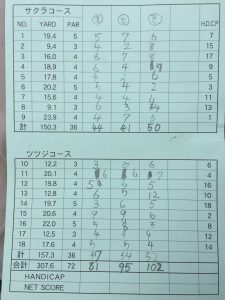 サクラコース
NO. YARD PAR H.D.C.P
1 19.4 5 5 7 6 7
2 9.4 3 4 2 8 15
3 16.0 4 6 7 8 17
4 18.9 4 6 4 9
5 17.8 4 6 5
6 20.2 5 5 4 2 3
7 15.6 4 4 4 11
8 9.1 3 6 3 13
9 23.9 4 4 7 5 1
計 150.3 36 44 41 50
ツツジコース
10 12.2 3 3 6 6 6
11 20.1 4 6 6 7 4
12 19.8 4 5 6 5 16
13 12.8 4 6 5 12 10
14 19.7 5 3 6 5 18
15 20.6 4 9 9 6 2
16 22.0 5 5 5 3 8
17 12.5 3 4 12
18 17.6 4 5 5 4 14
計 157.3 36 54
合計 307.6 72 81 95 102
HANDICAP
NET SCORE